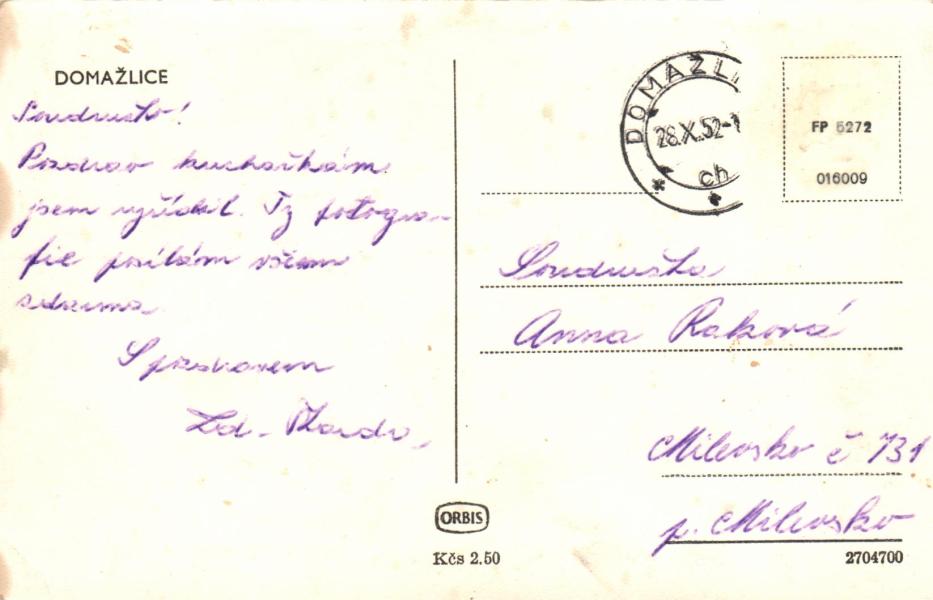 DOMAŽLICE
Soudružko!
Pozdrav kuchařkám
jsem vyřídil. Ty fotogra-
fie posílám všem
zdarma.
S pozdravem
Zd.
DOMAŽLI
28.X.52-1
ch
FP 5272
016009
Soudružka
Anna Raková
Milevsko č 731
p. Milevsko
ORBIS
Kčs 2.50
2704700